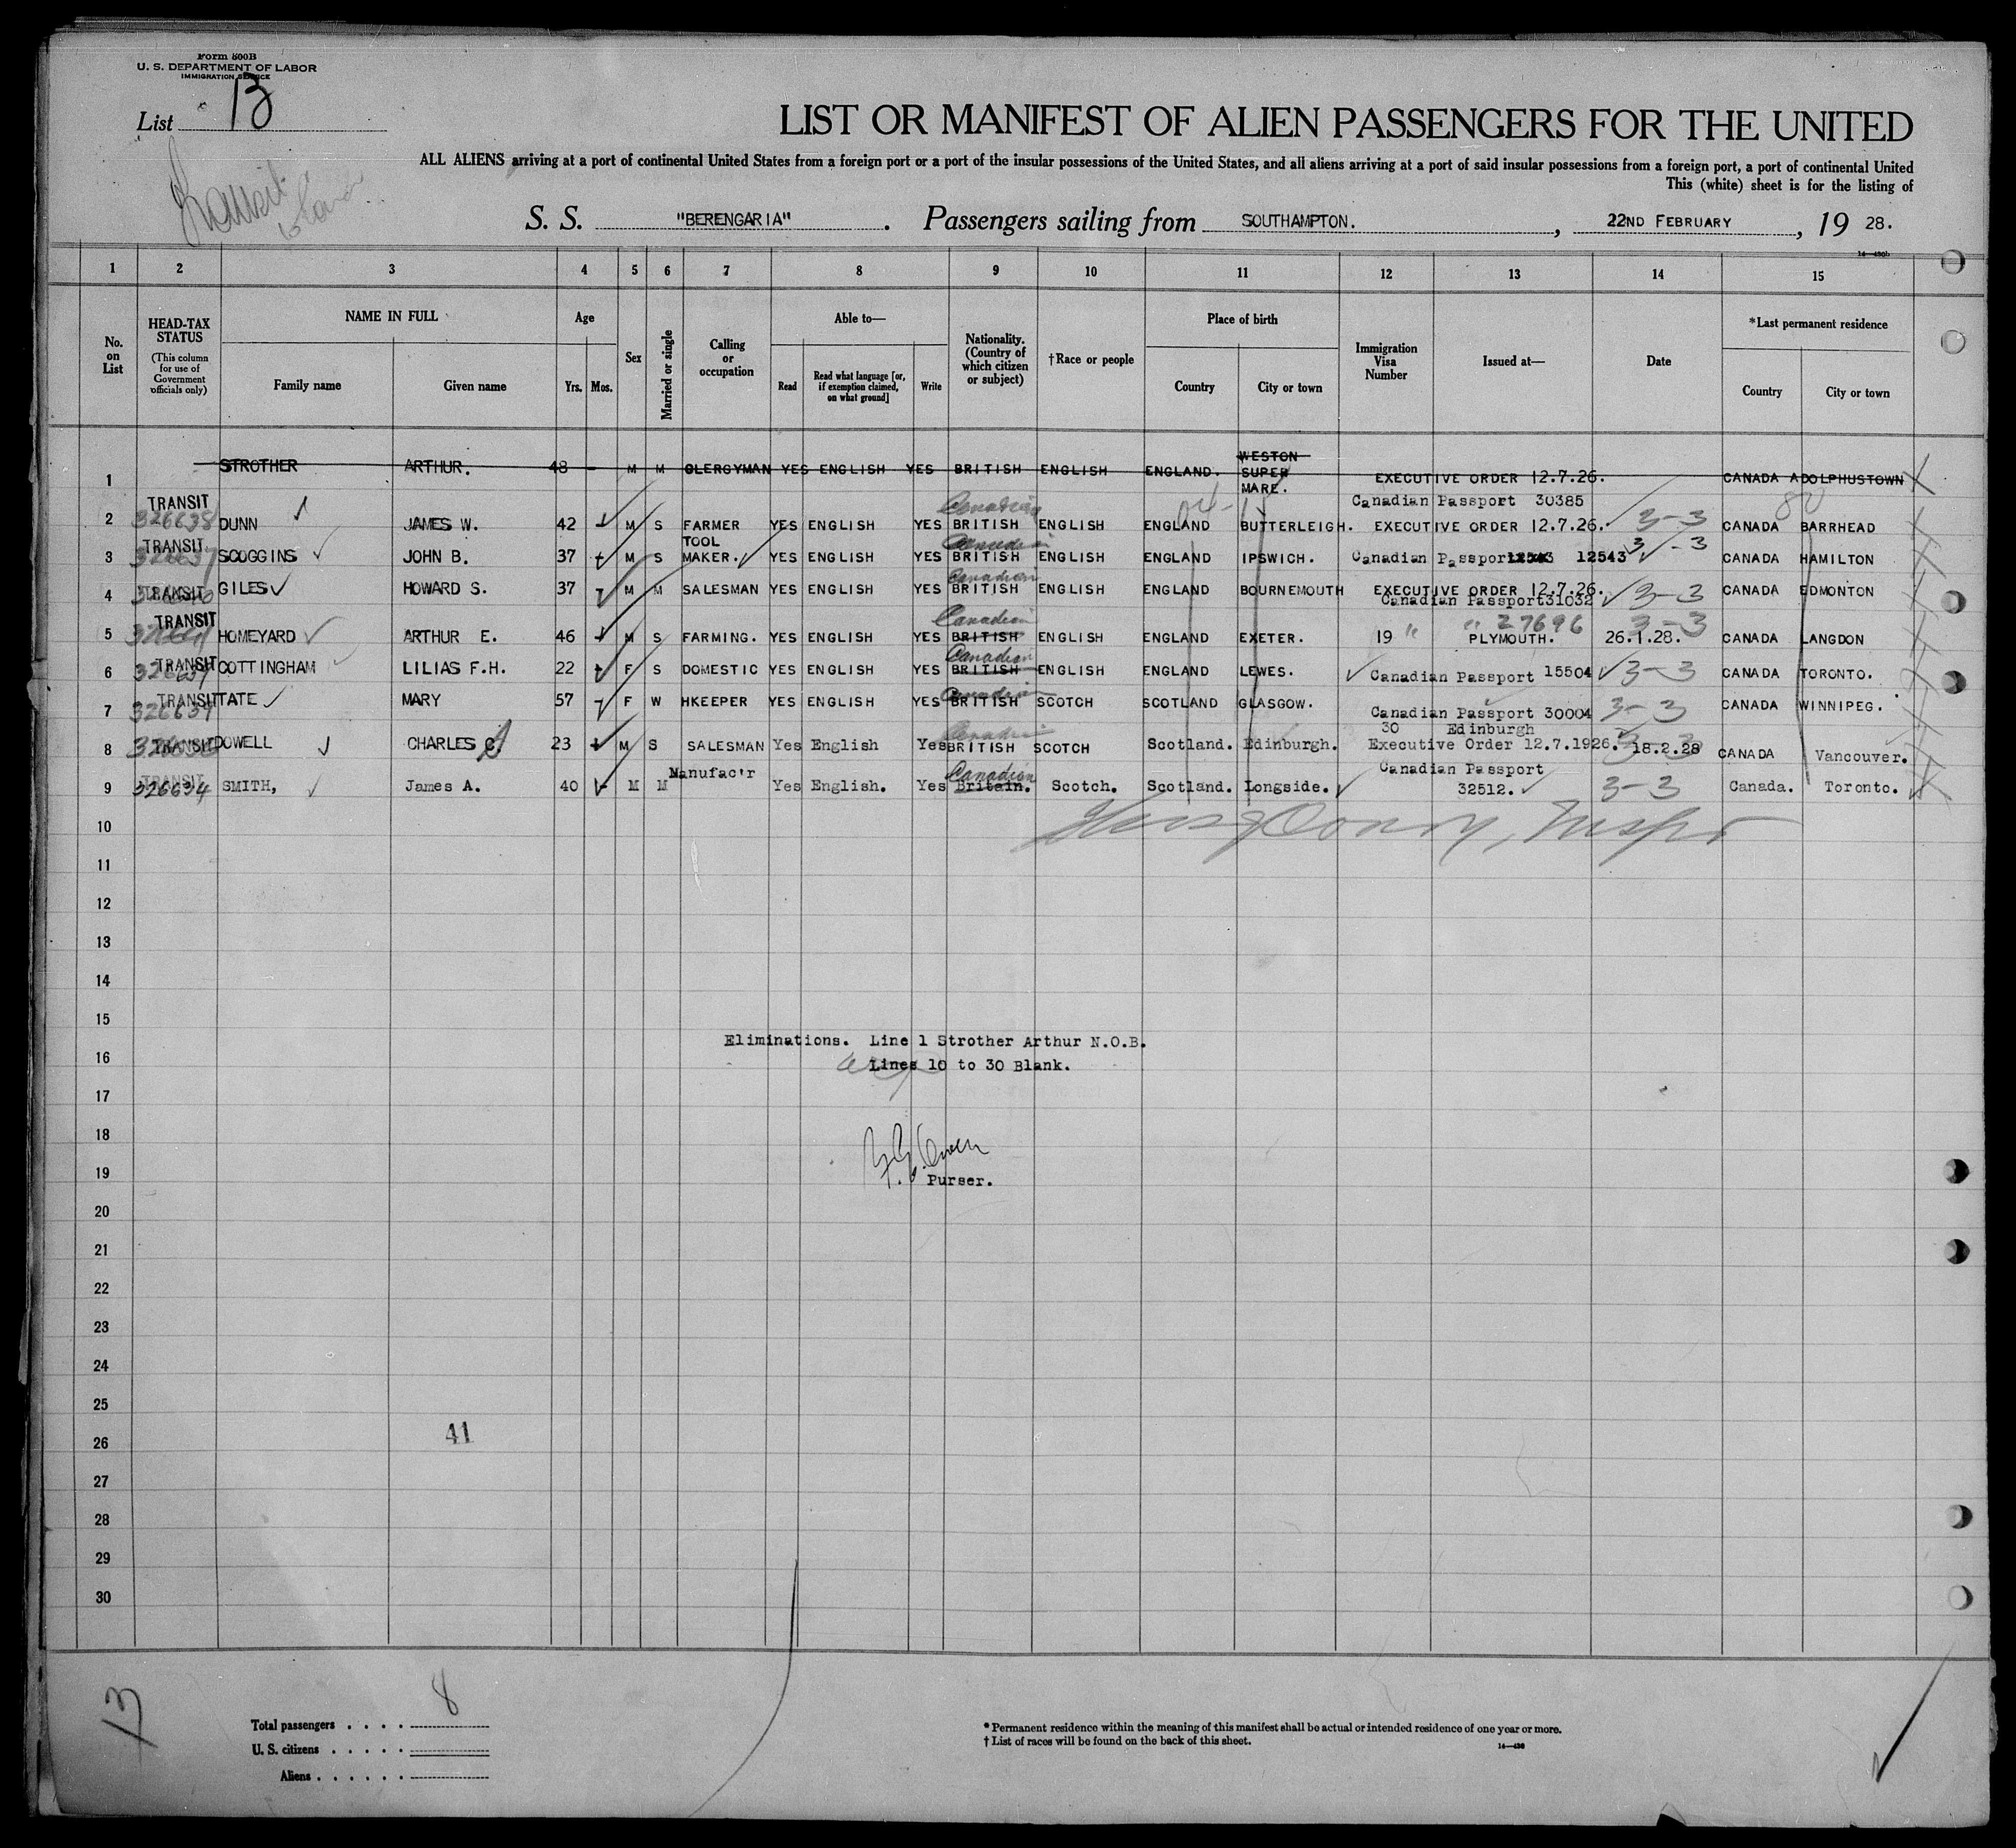 Form 800B
U. S. DEPARTMENT OF LABOR
IMMIGRATION SERVICE
List 13
LIST OR MANIFEST OF ALIEN PASSENGERS FOR THE UNITED
ALL ALIENS arriving at a port of continental United States from a foreign port or a port of the insular possessions of the United States, and all aliens arriving at a port of said insular possessions from a foreign port, a port of continental United
This (white) sheet is for the listing of
S. S. "BERENGARIA". Passengers sailing from SOUTHAMPTON. , 22ND FEBRUARY , 19 28.
1 2 3 4 5 6 7 8 9 10 11 12 13 14 15
No. on List
HEAD-TAX STATUS (This column for use of Government officials only)
NAME IN FULL
Family name Given name
Age
Yrs. Mos.
Sex
Married or single
Calling or occupation
Able to—
Read Read what language [or, if exemption claimed, on what ground] Write
Nationality. (Country of which citizen or subject)
†Race or people
Place of birth
Country City or town
Immigration Visa Number
Issued at—
Date
*Last permanent residence
Country City or town
1 STROTHER ARTHUR. 48 - M M CLERGYMAN YES ENGLISH YES BRITISH ENGLISH ENGLAND. WESTON SUPER MARE. EXECUTIVE ORDER 12.7.26. CANADA ADOLPHUSTOWN
Canadian Passport 30385
2 TRANSIT 326638 DUNN JAMES W. 42 M S FARMER YES ENGLISH YES Canadian BRITISH ENGLISH ENGLAND BUTTERLEIGH. EXECUTIVE ORDER 12.7.26. 3-3 CANADA BARRHEAD
3 TRANSIT SCOGGINS JOHN B. 37 M S TOOL MAKER. YES ENGLISH YES Canadian BRITISH ENGLISH ENGLAND IPSWICH. Canadian Passport 12543 12543 3-3 CANADA HAMILTON
4 TRANSIT GILES HOWARD S. 37 M M SALESMAN YES ENGLISH YES Canadian BRITISH ENGLISH ENGLAND BOURNEMOUTH EXECUTIVE ORDER 12.7.26. 3-3 CANADA EDMONTON
Canadian Passport 31032
5 TRANSIT HOMEYARD ARTHUR E. 46 M S FARMING. YES ENGLISH YES Canadian BRITISH ENGLISH ENGLAND EXETER. 19 " " 27696 PLYMOUTH. 3-3 26.1.28. CANADA LANGDON
6 TRANSIT COTTINGHAM LILIAS F.H. 22 F S DOMESTIC YES ENGLISH YES Canadian BRITISH ENGLISH ENGLAND LEWES. Canadian Passport 15504 3-3 CANADA TORONTO.
7 TRANSIT TATE MARY 57 F W HKEEPER YES ENGLISH YES Canadian BRITISH SCOTCH SCOTLAND GLASGOW. Canadian Passport 30004 3-3 CANADA WINNIPEG.
30 Edinburgh
8 TRANSIT DOWELL CHARLES C. 23 M S SALESMAN Yes English Yes Canadian BRITISH SCOTCH Scotland. Edinburgh. Executive Order 12.7.1926. 18.2.28 CANADA Vancouver.
9 TRANSIT 326634 SMITH, James A. 40 M M Manufac'r Yes English. Yes Canadian Britain. Scotch. Scotland. Longside. Canadian Passport 32512. 3-3 Canada. Toronto.
10
11
12
13
14
15
Eliminations. Line 1 Strother Arthur N.O.B.
16
Lines 10 to 30 Blank.
17
18
19
Purser.
20
21
22
23
24
25
41
26
27
28
29
30
13
Total passengers . . . . 8
U. S. citizens . . . . .
Aliens . . . . . .
* Permanent residence within the meaning of this manifest shall be actual or intended residence of one year or more.
† List of races will be found on the back of this sheet.
14—430